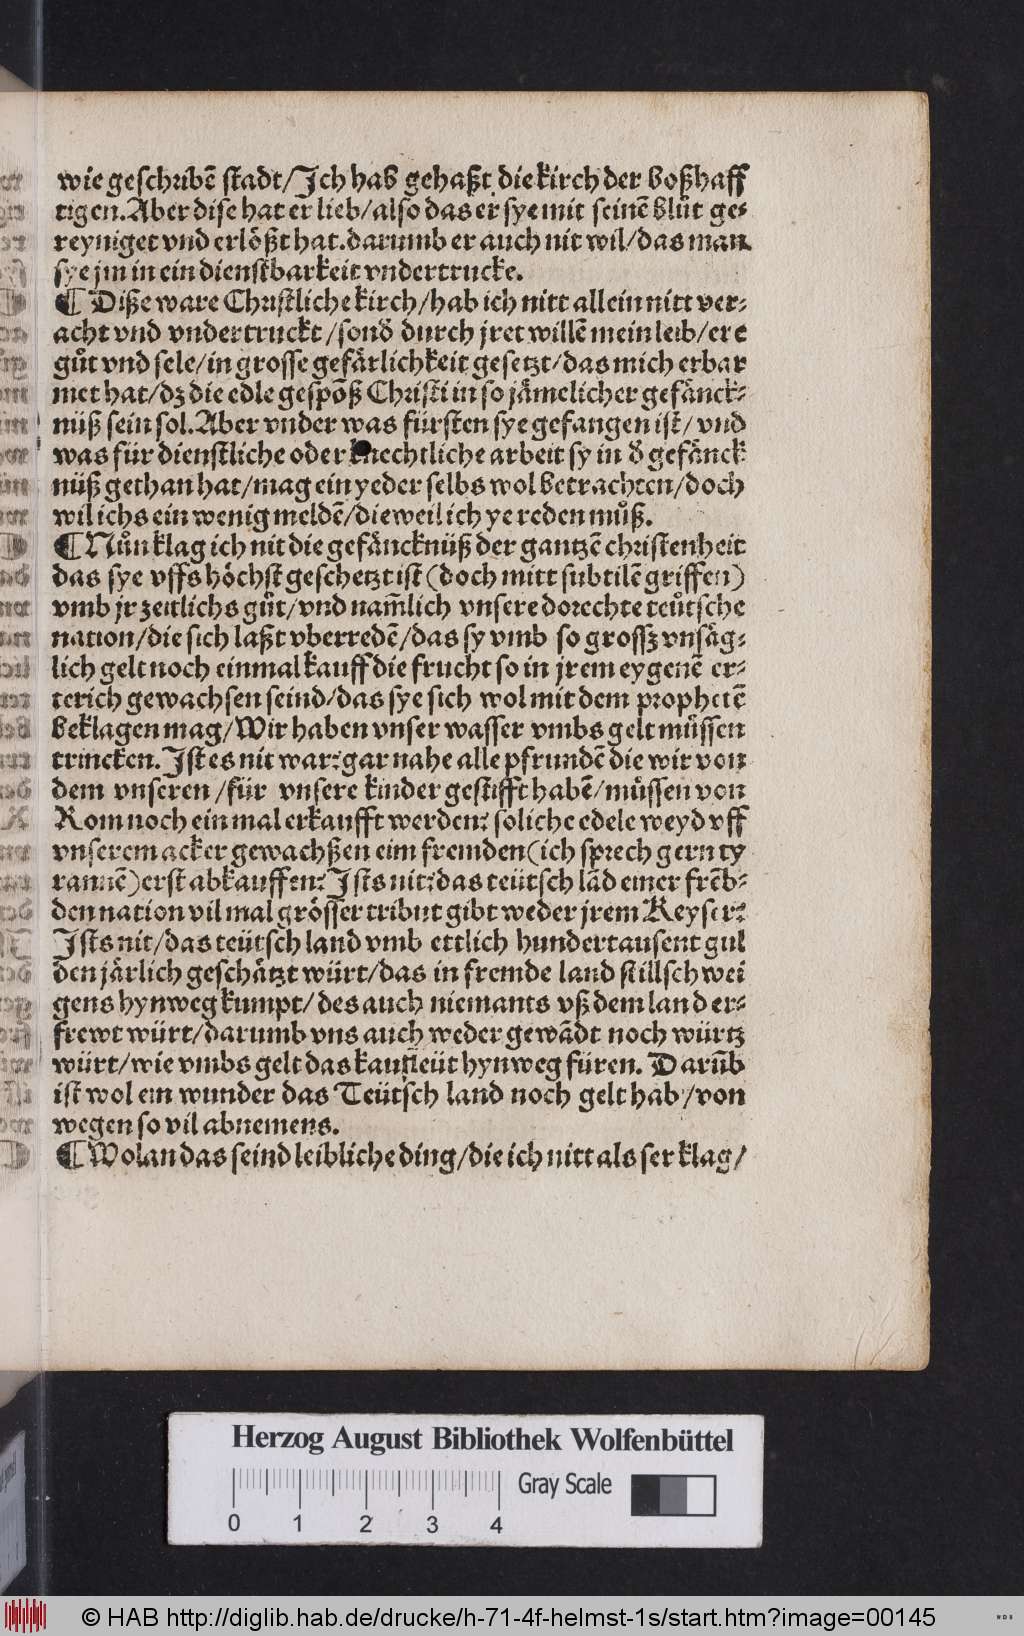 wie geschribē stadt/Ich hab gehaßt die kirch der boßhaff
tigen.Aber dise hat er lieb/also das er sye mit seinē blůt ge⸗
reyniget vnd erlößt hat.darumb er auch nit wil/das man
sye jm in ein dienstbarkeit vndertrucke.
¶ Diße ware Christliche kirch/hab ich nitt allein nitt ver⸗
acht vnd vndertruckt/sond̄ durch jret willē mein leib/ere
gůt vnd sele/in grosse gefärlichkeit gesetzt/das mich erbar
met hat/dz die edle gespōß Christi in so jämelicher gefänck⸗
nüß sein sol.Aber vnder was fürsten sye gefangen ist/vnd
was für dienstliche oder knechtliche arbeit sy in d̄ gefänck
nüß gethan hat/mag ein yeder selbs wol betrachten/doch
wil ichs ein wenig meldē/dieweil ich ye reden můß.
¶ Nůn klag ich nit die gefäncknüß der gantzē christenheit
das sye vffs höchst geschetzt ist (doch mitt subtilē griffen)
vmb jr zeitlichs gůt/vnd nam̄lich vnsere dorechte teůtsche
nation/die sich laßt vberredē/das sy vmb so grossz vnsäg⸗
lich gelt noch einmal kauff die frucht so in jrem eygenē er⸗
terich gewachsen seind/das sye sich wol mit dem prophetē
beklagen mag/Wir haben vnser wasser vmbs gelt müssen
trincken. Ist es nit war?gar nahe alle pfrundē die wir von
dem vnseren/für vnsere kinder gestifft habē/müssen von
Rom noch ein mal erkaufft werden? soliche edele weyd vff
vnserem acker gewachßen eim fremden(ich sprech gern ty
rannē)erst abkauffen?Ists nit?das teütsch lād einer frēb⸗
den nation vil mal grösser tribut gibt weder jrem Keyser?
Ists nit/das teütsch land vmb ettlich hundertausent gul
den järlich geschätzt würt/das in fremde land stillschwei
gens hynweg kumpt/des auch niemants vß dem land er⸗
frewt würt/darumb vns auch weder gewādt noch würtz
würt/wie vmbs gelt das kaufleüt hynweg füren. Darūb
ist wol ein wunder das Teütsch land noch gelt hab/von
wegen so vil abnemens.
¶ Wolan das seind leibliche ding/die ich nitt als ser klag/
Herzog August Bibliothek Wolfenbüttel
Gray Scale
0 1 2 3 4
© HAB http://diglib.hab.de/drucke/h-71-4f-helmst-1s/start.htm?image=00145